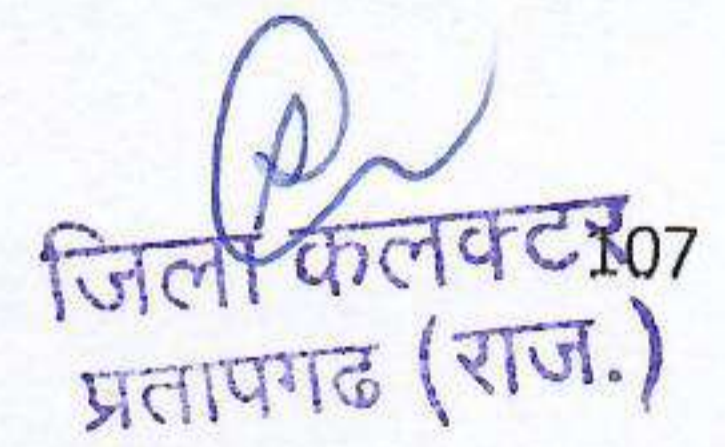 जिला कलक्टर 107
प्रतापगढ (राज.)